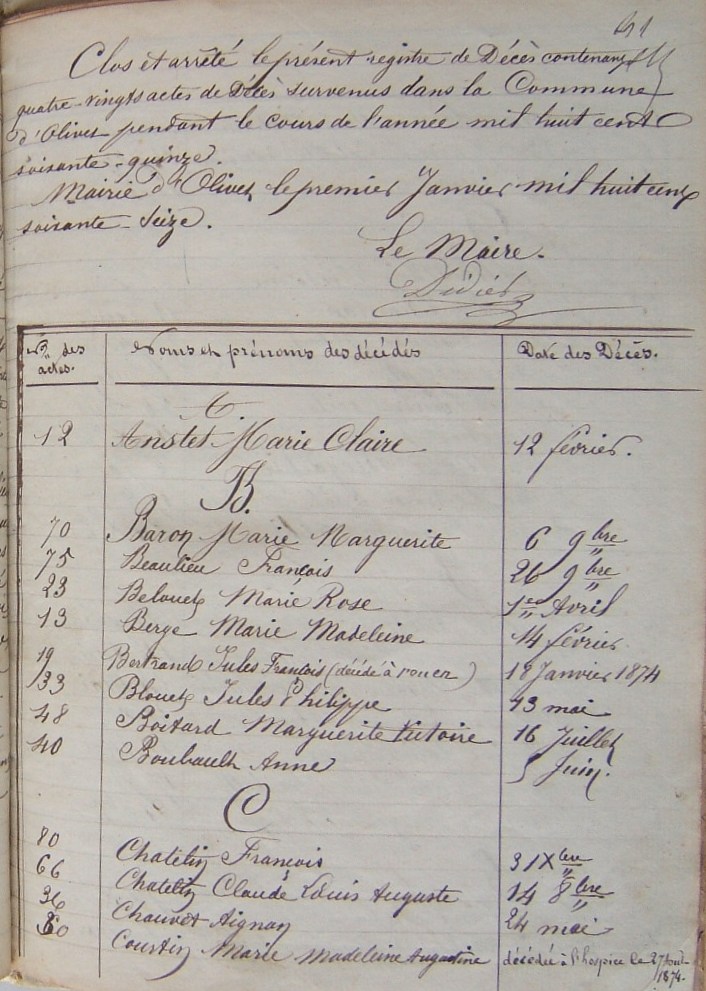 Clos et arrêté le présent registre de Décès contenant
quatre-vingts actes de Décès survenus dans la Commune
d'Olivet pendant le cours de l'année mil huit cent
soixante-quinze.
Mairie d'Olivet, le premier Janvier mil huit cent
soixante-seize.
Le Maire.
Nos des actes. Noms et prénoms des décédés Date des Décès.
A
12 Anstet Marie Claire 12 février.
B.
70 Baron Marie Marguerite 6 9bre
75 Beaulieu François 26 9bre
23 Belouet Marie Rose 1er Avril
13 Berge Marie Madeleine 14 février
19 Bertrand Jules François (décédé à rouen) 18 Janvier 1874
33 Blouet Jules Philippe 13 mai
48 Boitard Marguerite Victoire 16 Juillet
40 Boubault Anne 5 Juin.
C
80 Chatelin François 31 Xbre
66 Chatelin Claude Louis Auguste 14 8bre
36 Chauvet Aignan 24 mai
60 Courtin Marie Madeleine Augustine décédée à l'hospice le 27 1874.